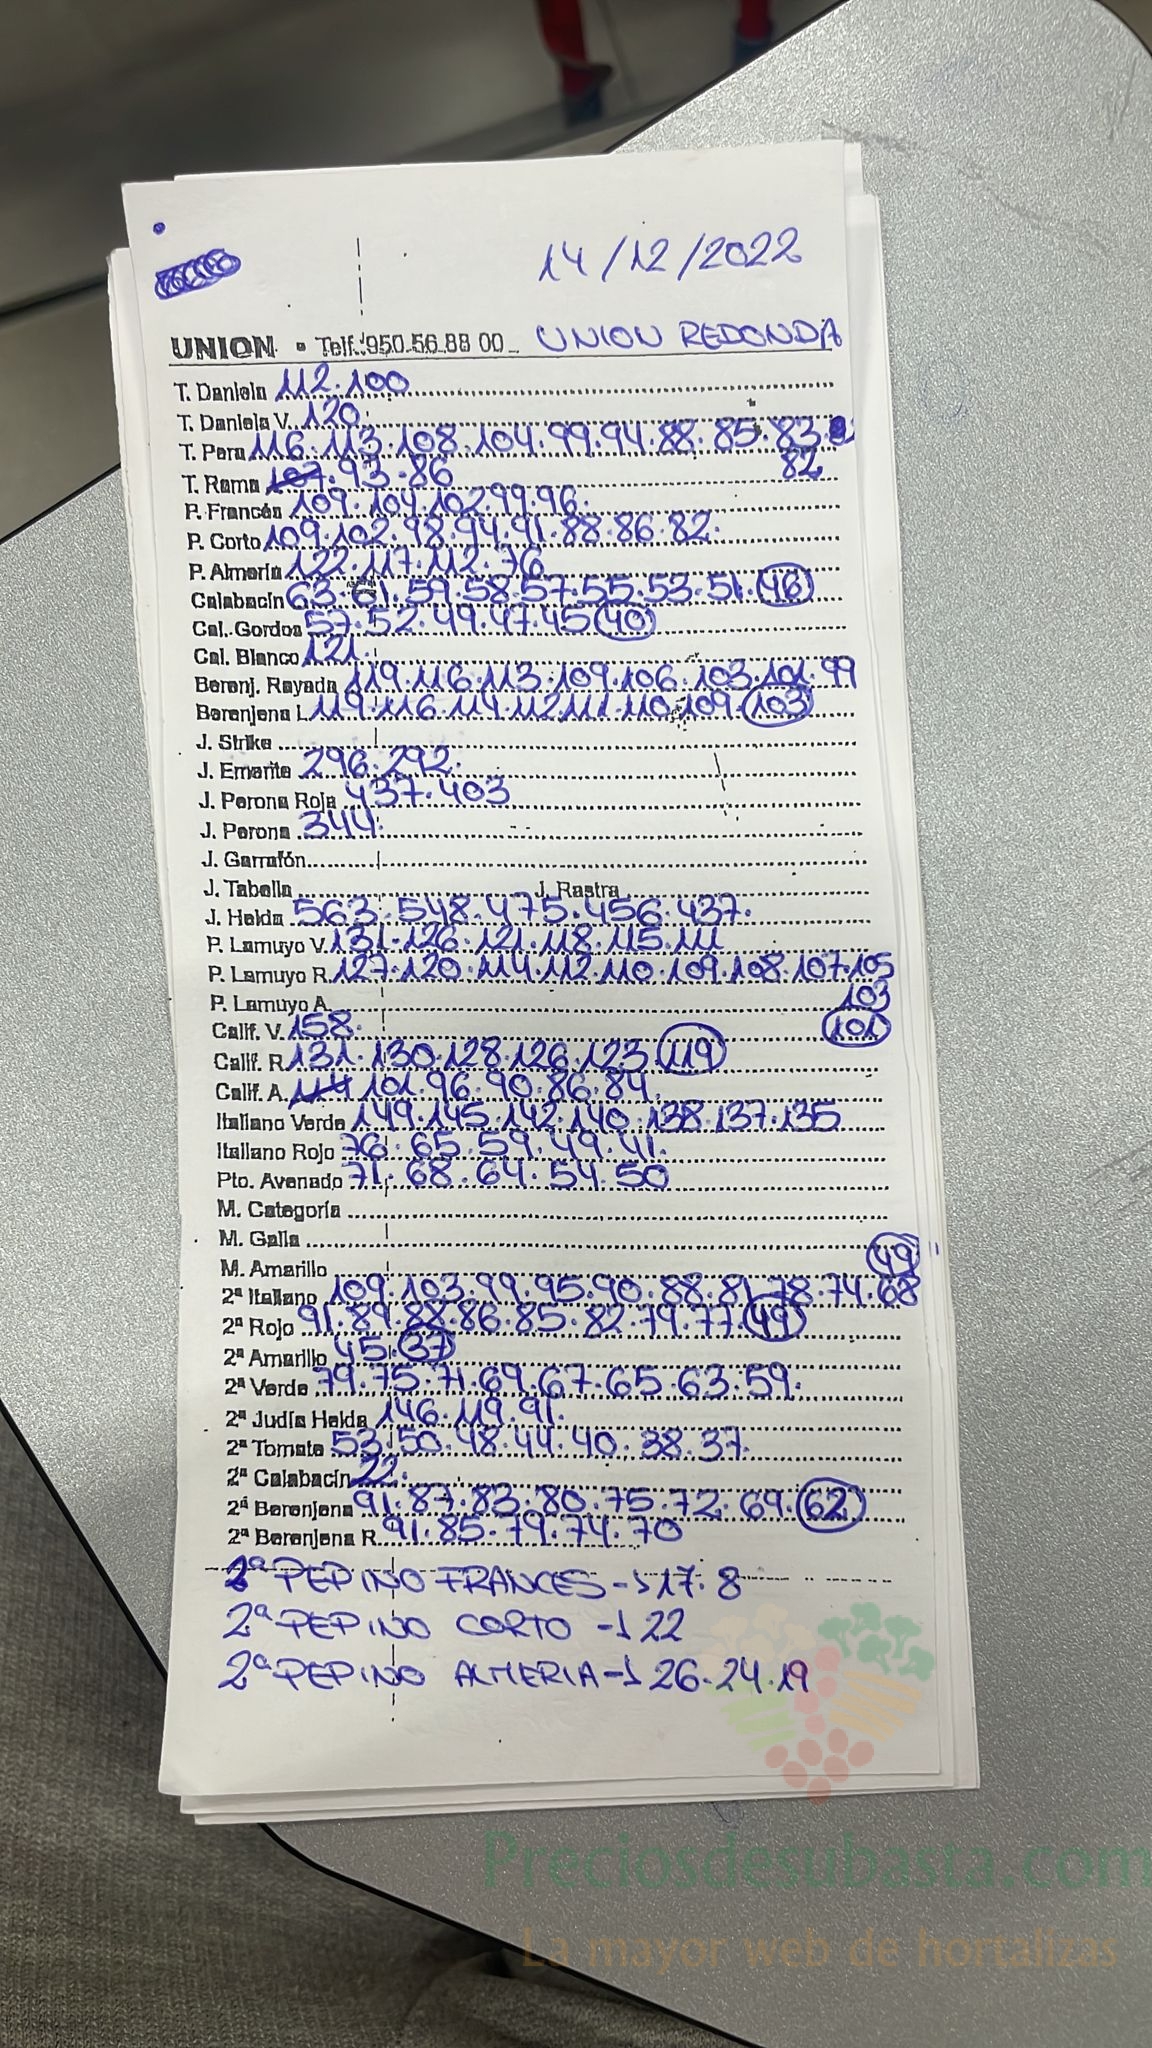 14/12/2022
UNION • Telf.:950.56.88 00 UNION REDONDA
T. Daniela 112.100
T. Daniela V. 120
T. Pera 116.113.108.104.99.94.88.85.83.
82
T. Rama 107.93.86
P. Francés 109.104.102.99.96.
P. Corto 109.102.98.94.91.88.86.82.
P. Almería 122.117.112.76
Calabacín 63.61.59.58.57.55.53.51.46
Cal. Gordos 57.52.49.47.45 40
Cal. Blanco 121.
Berenj. Rayada 119.116.113.109.106.103.101.99
Berenjena L. 119.116.114.112.111.110.109.103
J. Strike
J. Emerite 296.292.
J. Perona Roja 437.403
J. Perona 344.
J. Garrafón
J. Tabella J. Rastra
J. Helda 563.548.475.456.437.
P. Lamuyo V. 131.126.121.118.115.111
P. Lamuyo R. 127.120.114.112.110.109.108.107.105
103
P. Lamuyo A.
101
Calif. V. 158.
Calif. R. 131.130.128.126.123.119
Calif. A. 114 101.96.90.86.84.
Italiano Verde 149.145.142.140.138.137.135
Italiano Rojo 76.65.59.49.41.
Pto. Avenado 71.68.64.54.50
M. Categoría
M. Galla
49
M. Amarillo
2ª Italiano 109.103.99.95.90.88.81.78.74.68
2ª Rojo 91.89.88.86.85.82.79.77.49
2ª Amarillo 45.37
2ª Verde 79.75.71.69.67.65.63.59.
2ª Judía Helda 146.119.91.
2ª Tomate 53.50.48.44.40.38.37.
2ª Calabacín 22.
2ª Berenjena 91.87.83.80.75.72.69.62
2ª Berenjena R. 91.85.79.74.70
2ª PEPINO FRANCES → 17.8
2ª PEPINO CORTO → 22
2ª PEPINO ALMERIA → 26.24.19
Preciosdesubasta.com
La mayor web de hortalizas